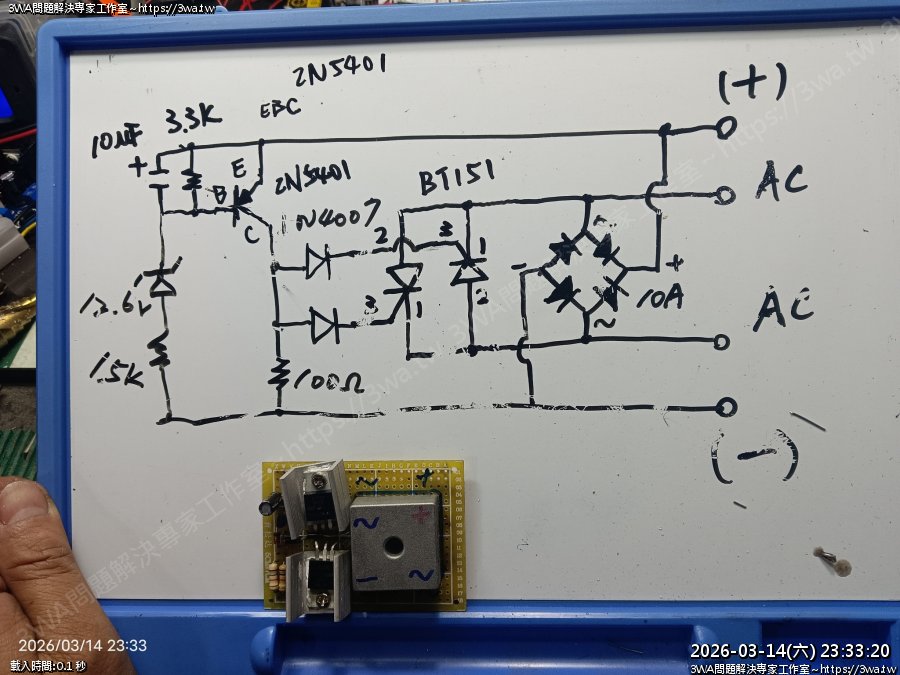 3WA問題解決專家工作室~https://3wa.tw
2N5401
EBC
(+)
10uF
3.3K
+
E
B
C
2N5401
BT151
AC
N4007
2
3
1
~
-
+
10A
3
1
2
13.6V
~
AC
1.5K
100Ω
(-)
~
+
~
+
-
~
2026/03/14 23:33
載入時間:0.1 秒
2026-03-14(六) 23:33:20
3WA問題解決專家工作室~https://3wa.tw